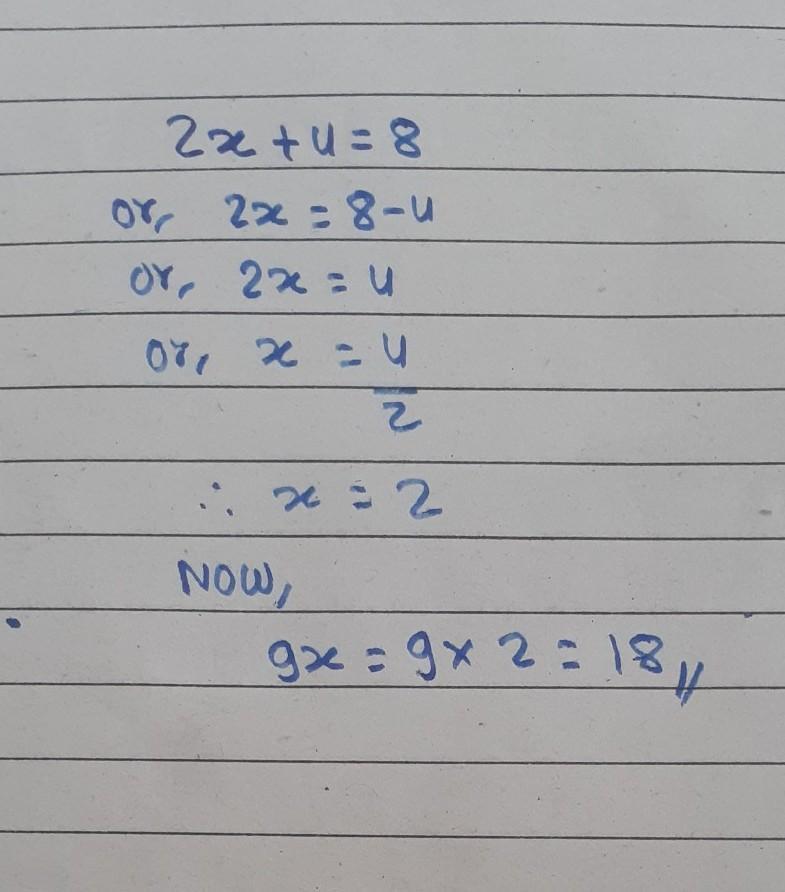 2x + 4 = 8
or, 2x = 8 - 4
or, 2x = 4
or, x = 4/2
∴ x = 2
NOW,
9x = 9 × 2 = 18//